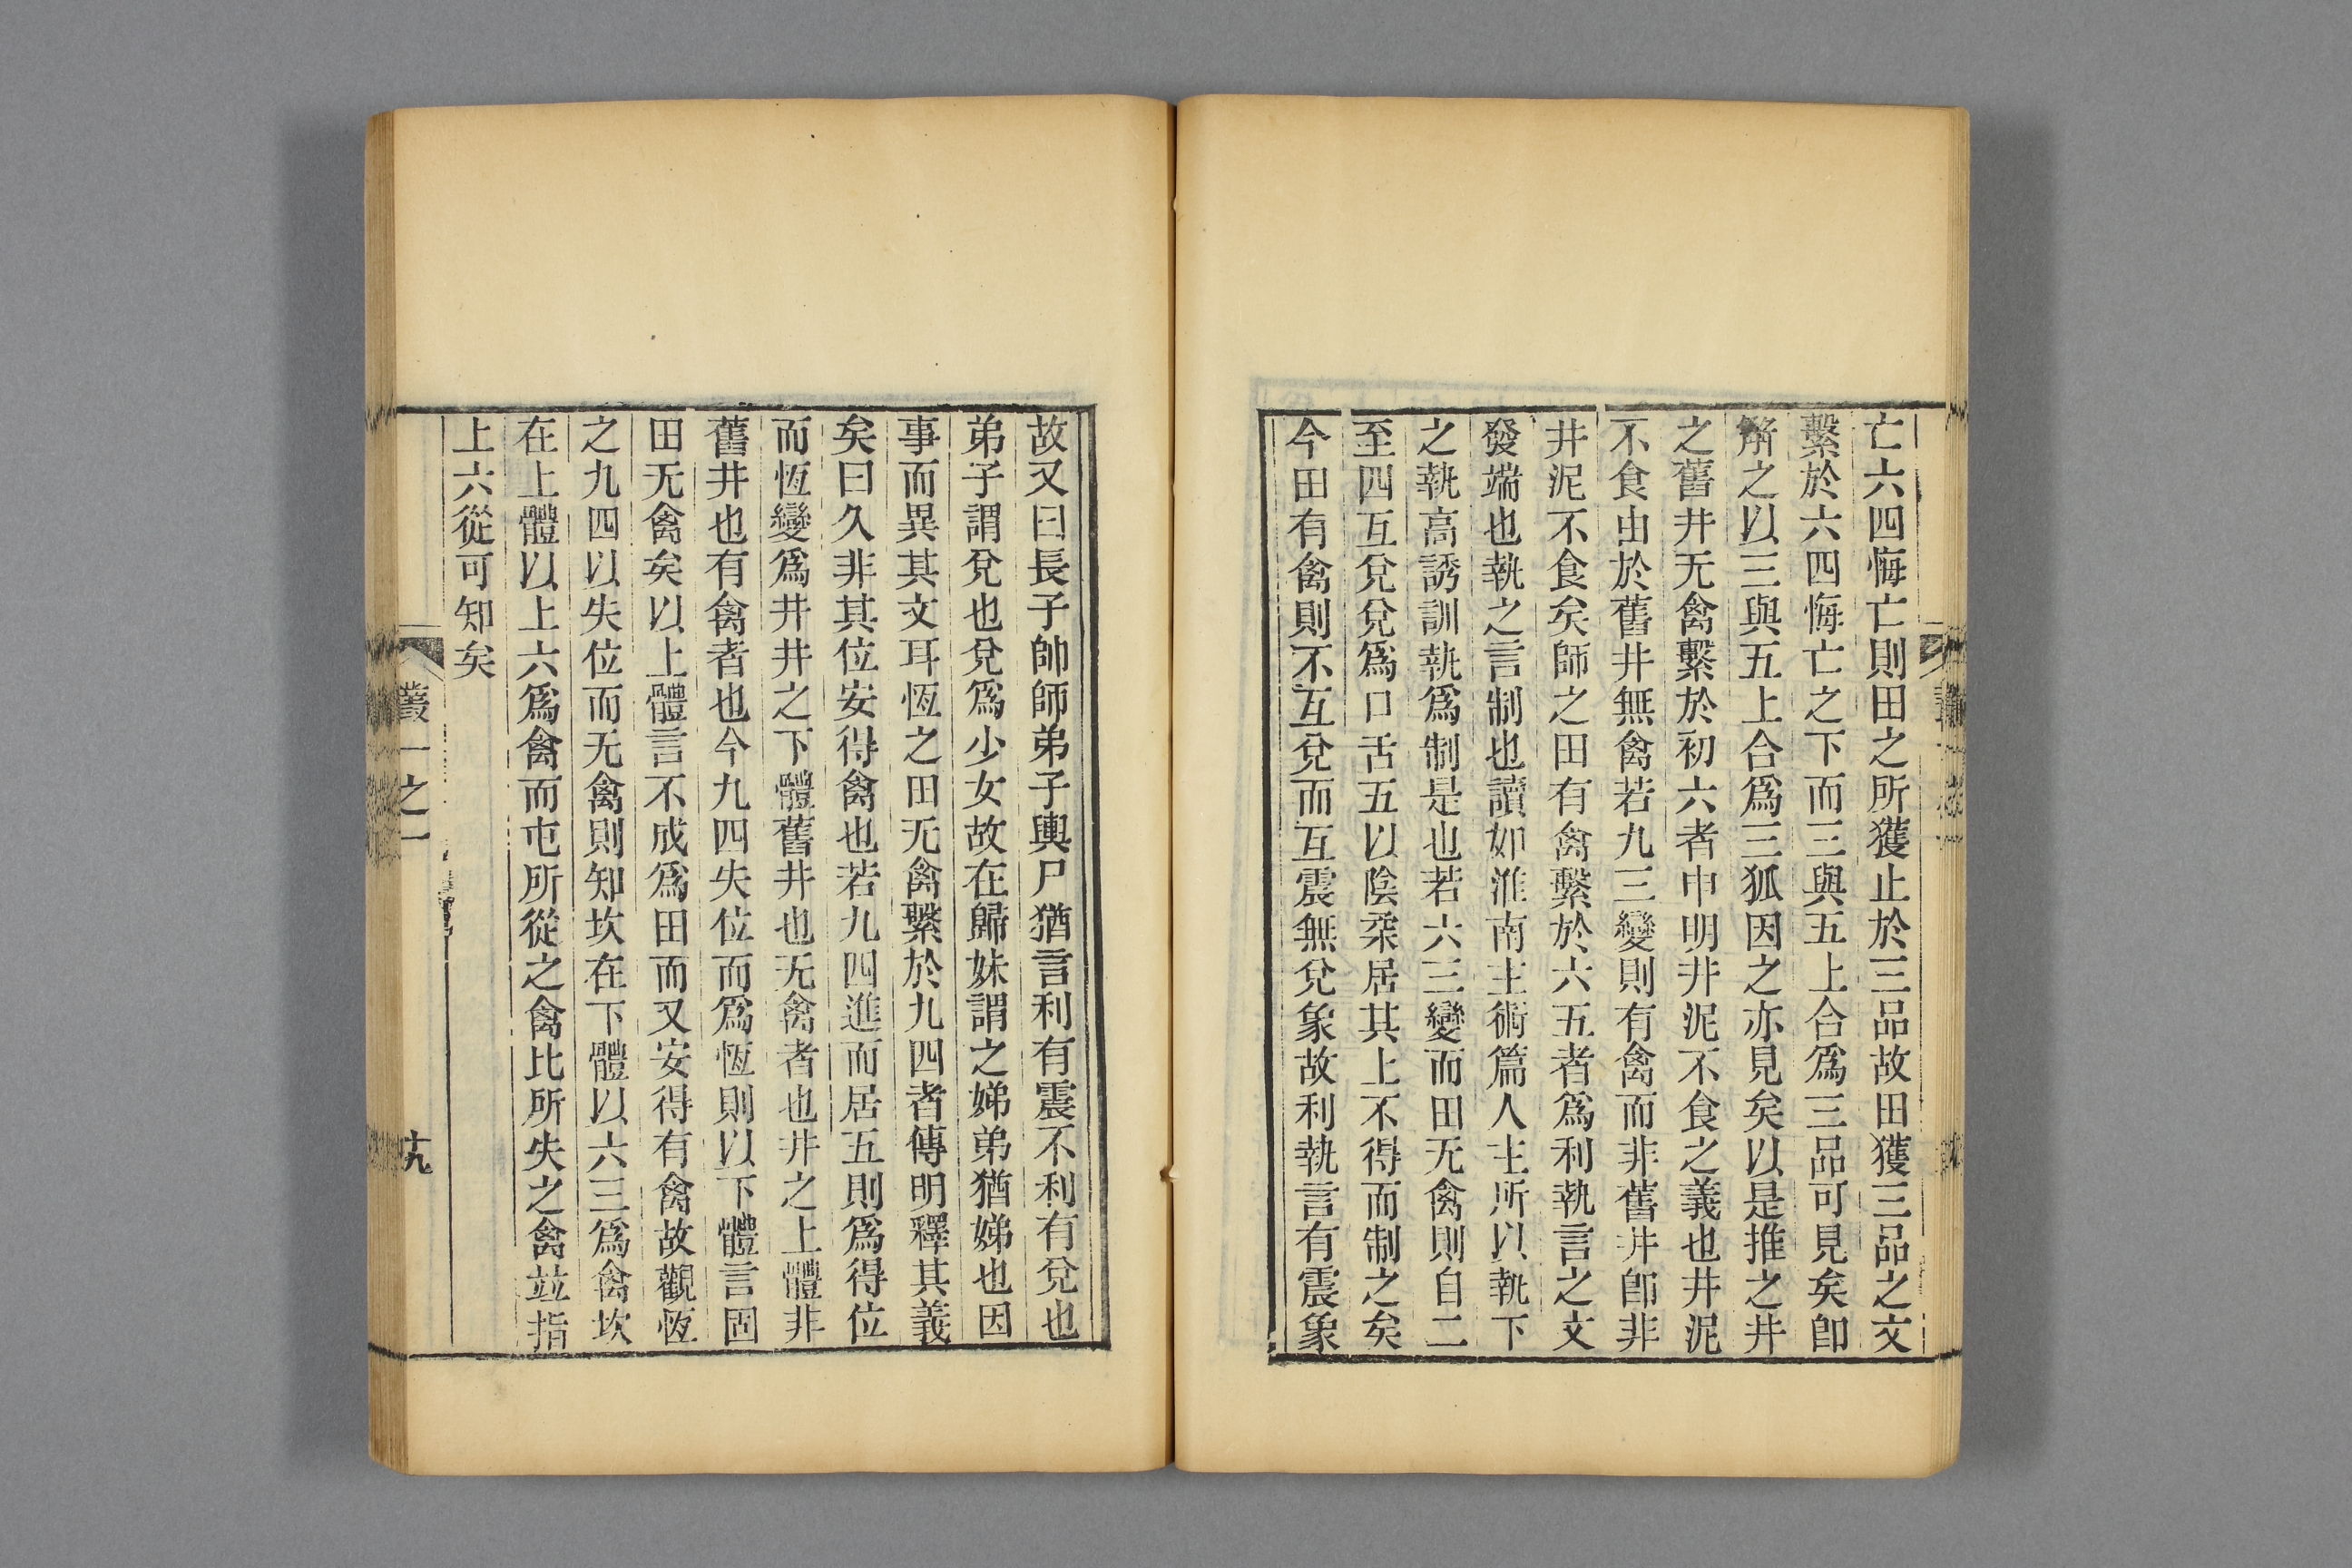 亡六四悔亡則田之所獲止於三品故田獲三品之文
繫於六四悔亡之下而三與五上合爲三品可見矣卽
觧之以三與五上合爲三狐因之亦見矣以是推之井
之舊井无禽繫於初六者申明井泥不食之義也井泥
不食由於舊井無禽若九三變則有禽而非舊井卽非
井泥不食矣師之田有禽繫於六五者爲利執言之文
發端也執之言制也讀如淮南主術篇人主所以執下
之執高誘訓執爲制是也若六三變而田无禽則自二
至四互兌兌爲口舌五以陰柔居其上不得而制之矣
今田有禽則不互兌而互震無兌象故利執言有震象
故又曰長子帥師弟子輿尸猶言利有震不利有兌也
弟子謂兌也兌爲少女故在歸妹謂之娣弟猶娣也因
事而異其文耳恆之田无禽繫於九四者傳明釋其義
矣曰久非其位安得禽也若九四進而居五則爲得位
而恆變爲井井之下體舊井也无禽者也井之上體非
舊井也有禽者也今九四失位而爲恆則以下體言固
田无禽矣以上體言不成爲田而又安得有禽故觀恆
之九四以失位而无禽則知坎在下體以六三爲禽坎
在上體以上六爲禽而屯所從之禽比所失之禽並指
上六從可知矣
叢一之一
十九